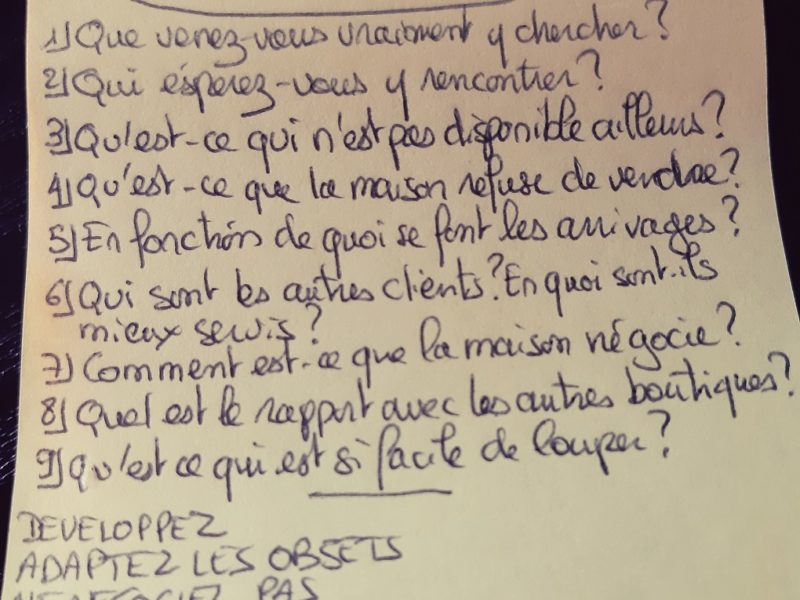 1) Que venez-vous vraiment y chercher?
2) Qui espérez-vous y rencontrer?
3) Qu'est-ce qui n'est pas disponible ailleurs?
4) Qu'est-ce que la maison refuse de vendre?
5) En fonction de quoi se font les arrivages?
6) Qui sont les autres clients? En quoi sont-ils
mieux servis?
7) Comment est-ce que la maison négocie?
8) Quel est le rapport avec les autres boutiques?
9) Qu'est ce qui est si facile de louper?
DEVELOPPEZ
ADAPTEZ LES OBJETS
NE NEGOCIEZ PAS